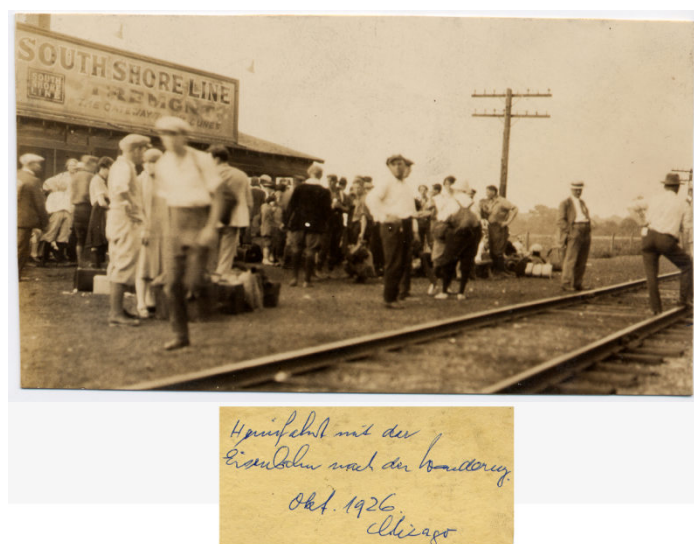 SOUTH SHORE LINE
TREMONT
THE GATEWAY
DUNES
Heimfahrt mit der
Eisenbahn nach der Wanderung.
Okt. 1926.
Chicago